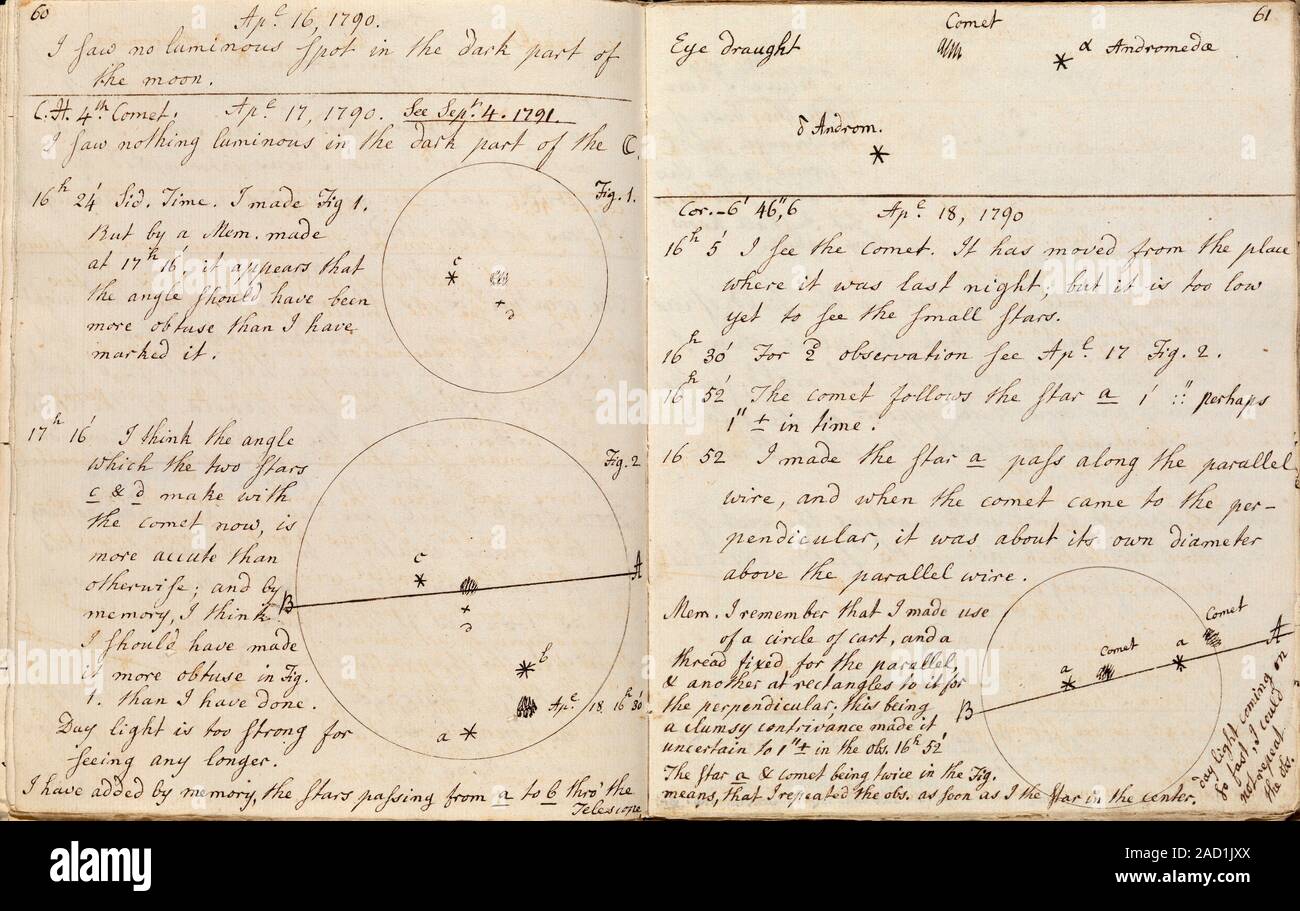 60
Ap.l 16, 1790.
I saw no luminous spot in the dark part of
the moon.
C.H. 4.th Comet. Ap.l 17, 1790. See Sep.t 4. 1791.
I saw nothing luminous in the dark part of the ☾.
16h 24' Sid. Time. I made Fig 1.
But by a Mem. made
at 17h 16', it appears that
the angle should have been
more obtuse than I have
marked it.
Fig. 1.
c
d
17h 16' I think the angle
which the two stars
c & d make with
the comet now, is
more accute than
otherwise; and by
memory, I think
I should have made
it more obtuse in Fig.
1. than I have done.
Day light is too strong for
seeing any longer.
Fig. 2
c
A
B
d
b
Ap.l 18 16h 30'
a
I have added by memory, the stars passing from a to b thro' the
Telescope
61
Comet
Eye draught
α Andromedæ
δ Androm.
Cor. -6' 46",6 Ap.l 18, 1790
16h 5' I see the comet. It has moved from the place
where it was last night; but it is too low
yet to see the small stars.
16h 30' For 2d observation see Ap.l 17 Fig. 2.
16h 52' The comet follows the star a 1' :: perhaps
1" ± in time.
16 52 I made the star a pass along the parallel
wire, and when the comet came to the per-
pendicular, it was about its own diameter
above the parallel wire.
Mem. I remember that I made use
of a circle of cart, and a
thread fixed, for the parallel,
& another at rectangles to it for
the perpendicular; this being
a clumsy contrivance made it
uncertain to 1" ± in the obs. 16h 52'
The star a & comet being twice in the Fig.
means, that I repeated the obs. as soon as I the star in the center.
Comet
A
a
Comet
a
B
day light coming on
so fast, I could
not repeat
the obs.
alamy
alamy
Image ID: 2AD1JXX
www.alamy.com